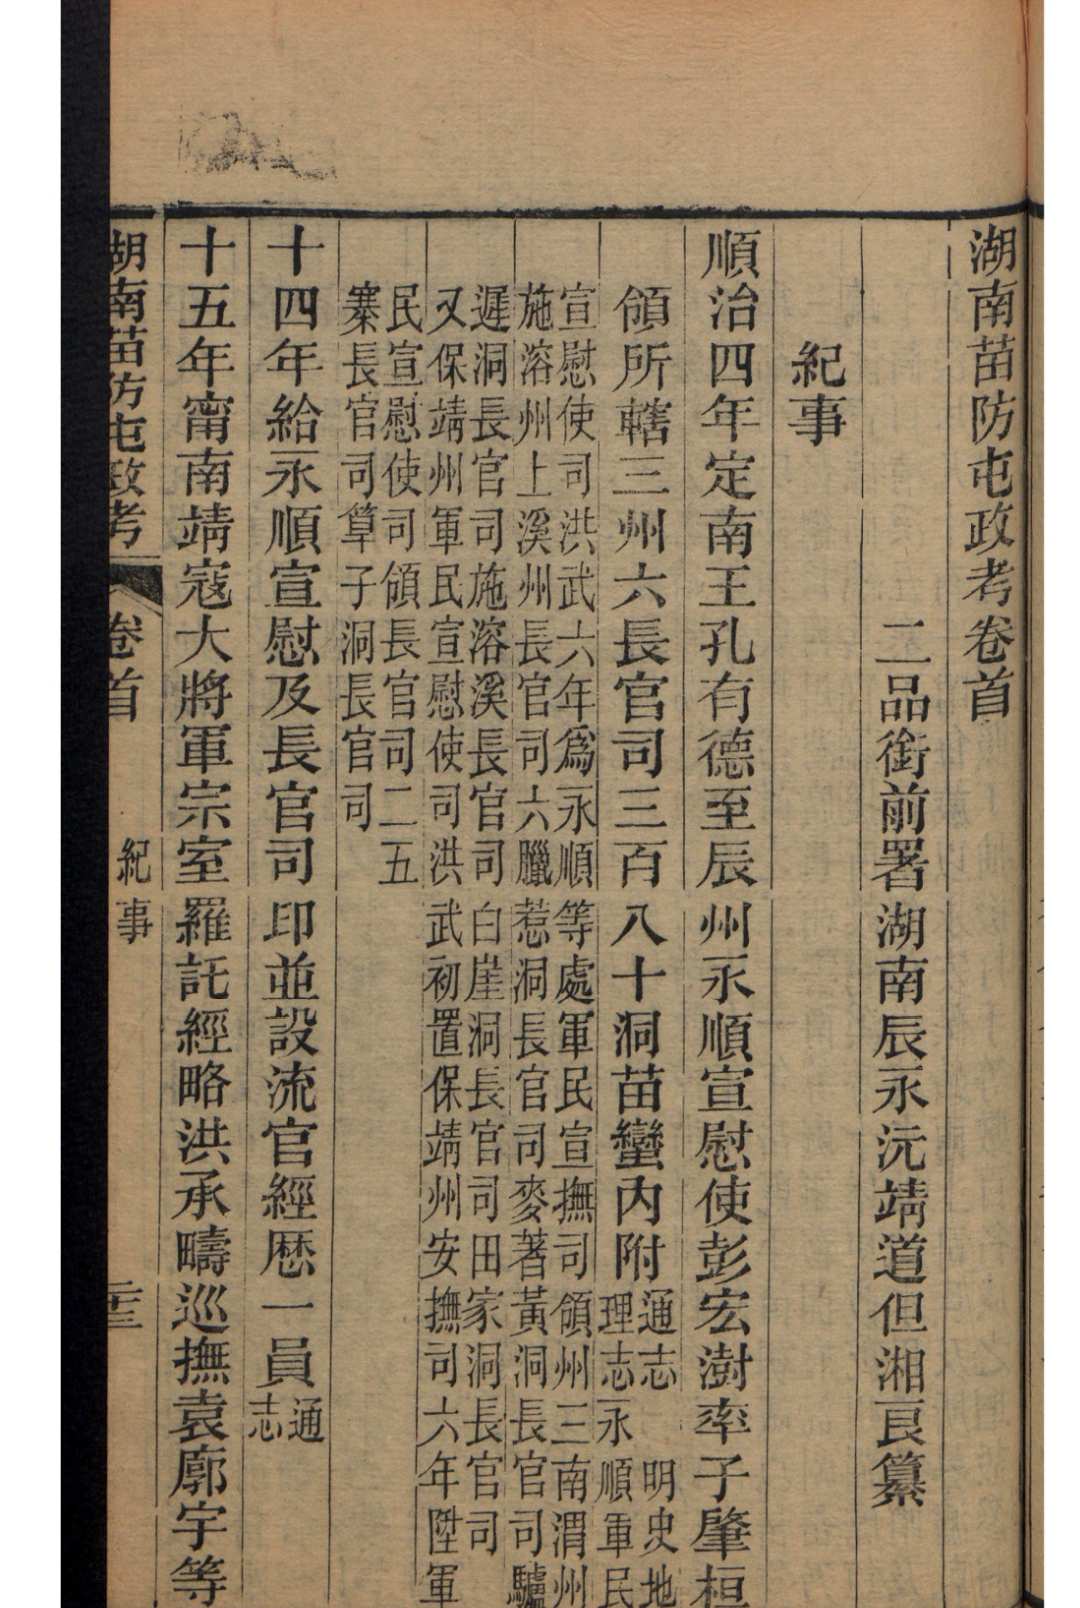 湖南苗防屯政考卷首
二品銜前署湖南辰永沅靖道但湘良纂
紀事
順治四年定南王孔有德至辰州永順宣慰使彭宏澍率子肇桓
領所轄三州六長官司三百八十洞苗蠻內附
通志 明史地
理志永順軍民
宣慰使司洪武六年爲永順等處軍民宣撫司領州三南渭州
施溶州上溪州長官司六臘惹洞長官司麥著黃洞長官司驢
遲洞長官司施溶溪長官司白崖洞長官司田家洞長官司
又保靖州軍民宣慰使司洪武初置保靖州安撫司六年陞軍
民宣慰使司領長官司二五
寨長官司筸子洞長官司
十四年給永順宣慰及長官司印並設流官經厯一員
通
志
十五年甯南靖寇大將軍宗室羅託經略洪承疇巡撫袁廓宇等
湖南苗防屯政考 卷首 紀事